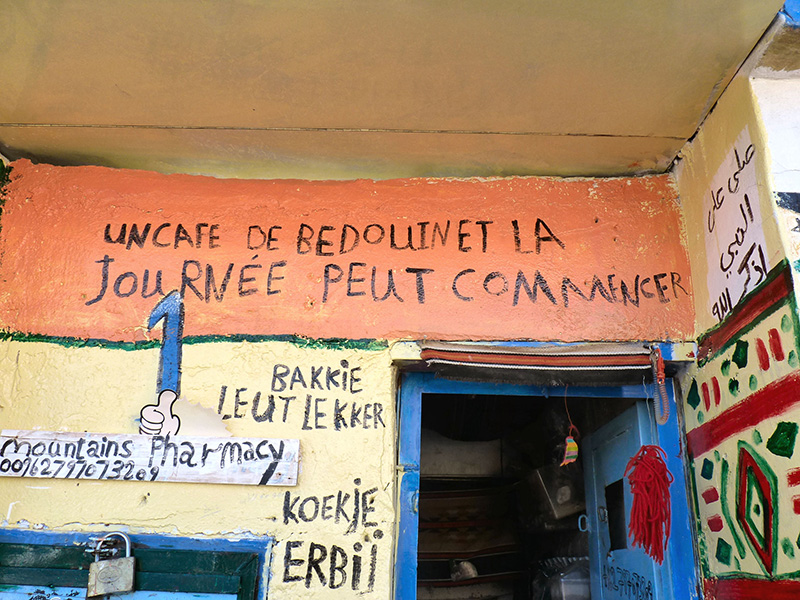 UNCAFE DE BEDOUINET LA
JOURNÉE PEUT COMMENCER
1
BAKKIE
LEUT LEKKER
mountains Pharmacy
00962797073209
KOEKJE
ERBIJ
صلي على
النبي
اذكر
الله